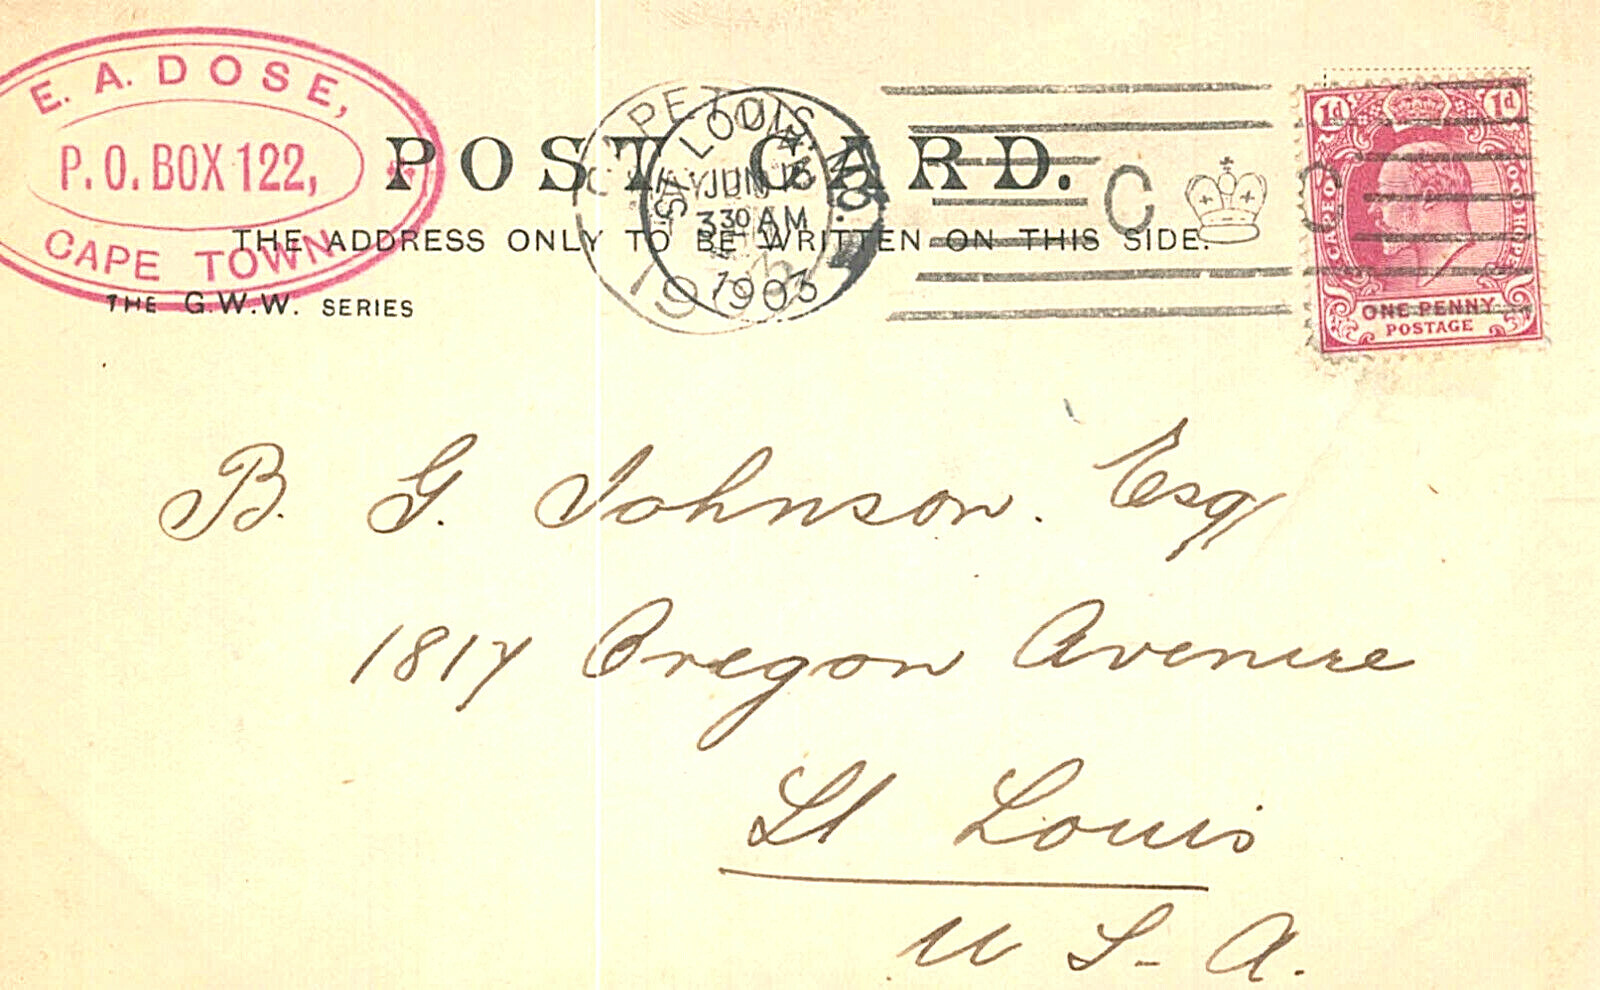 E. A. DOSE,
P. O. BOX 122,
CAPE TOWN
POST CARD.
THE ADDRESS ONLY TO BE WRITTEN ON THIS SIDE.
THE G.W.W. SERIES
ST LOUIS, MO.
JUN
3 30 AM
1903
C C
1d 1d
CAPE OF GOOD HOPE
ONE PENNY
POSTAGE
B. G. Johnson. Esq
1817 Oregon Avenue
St Louis
U S - A.